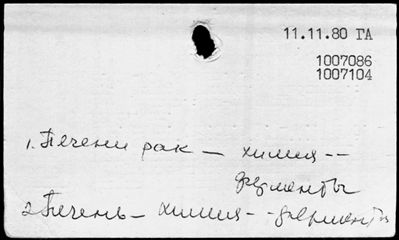 11.11.80 ГА
1007086
1007104
1. Печени рак — химия --
ферменты
2 Печень — химия -- ферменты